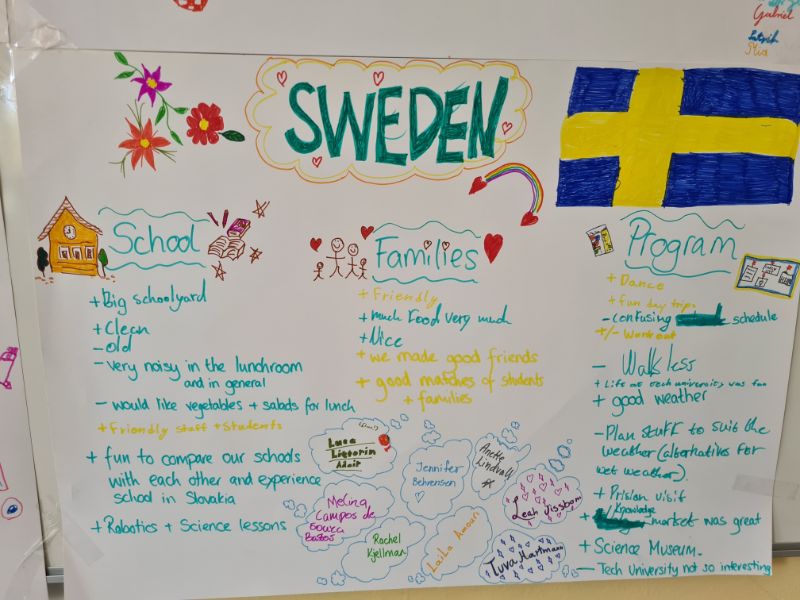 Gabriel
Mia
SWEDEN
School
+Big schoolyard
+Clean
-old
-very noisy in the lunchroom
and in general
-would like vegetables + salads for lunch
+Friendly staff + Students
+ fun to compare our schools
with each other and experience
school in Slovakia
+Robotics + Science lessons
Families
+Friendly
+much Food very much
+Nice
+we made good friends
+ good matches of students
+ families
Program
+Dance
+ fun day trips
-confusing schedule
+/- Workout
- Walk less
+ Life at tech university was fun
+ good weather
-Plan stuff to suit the
weather (alternatives for
wet weather).
+ Prision visit
+ Knowledge market was great
+ Science Museum.
- Tech University not so interesting
Luna
Adair
Jennifer
Behrenson
Anette
Lindvall
Melina
Campos de
Souza
Bastos
Leah Jissbom
Rachel
Kjellman
Laila Amouri
Tuva Hartmann